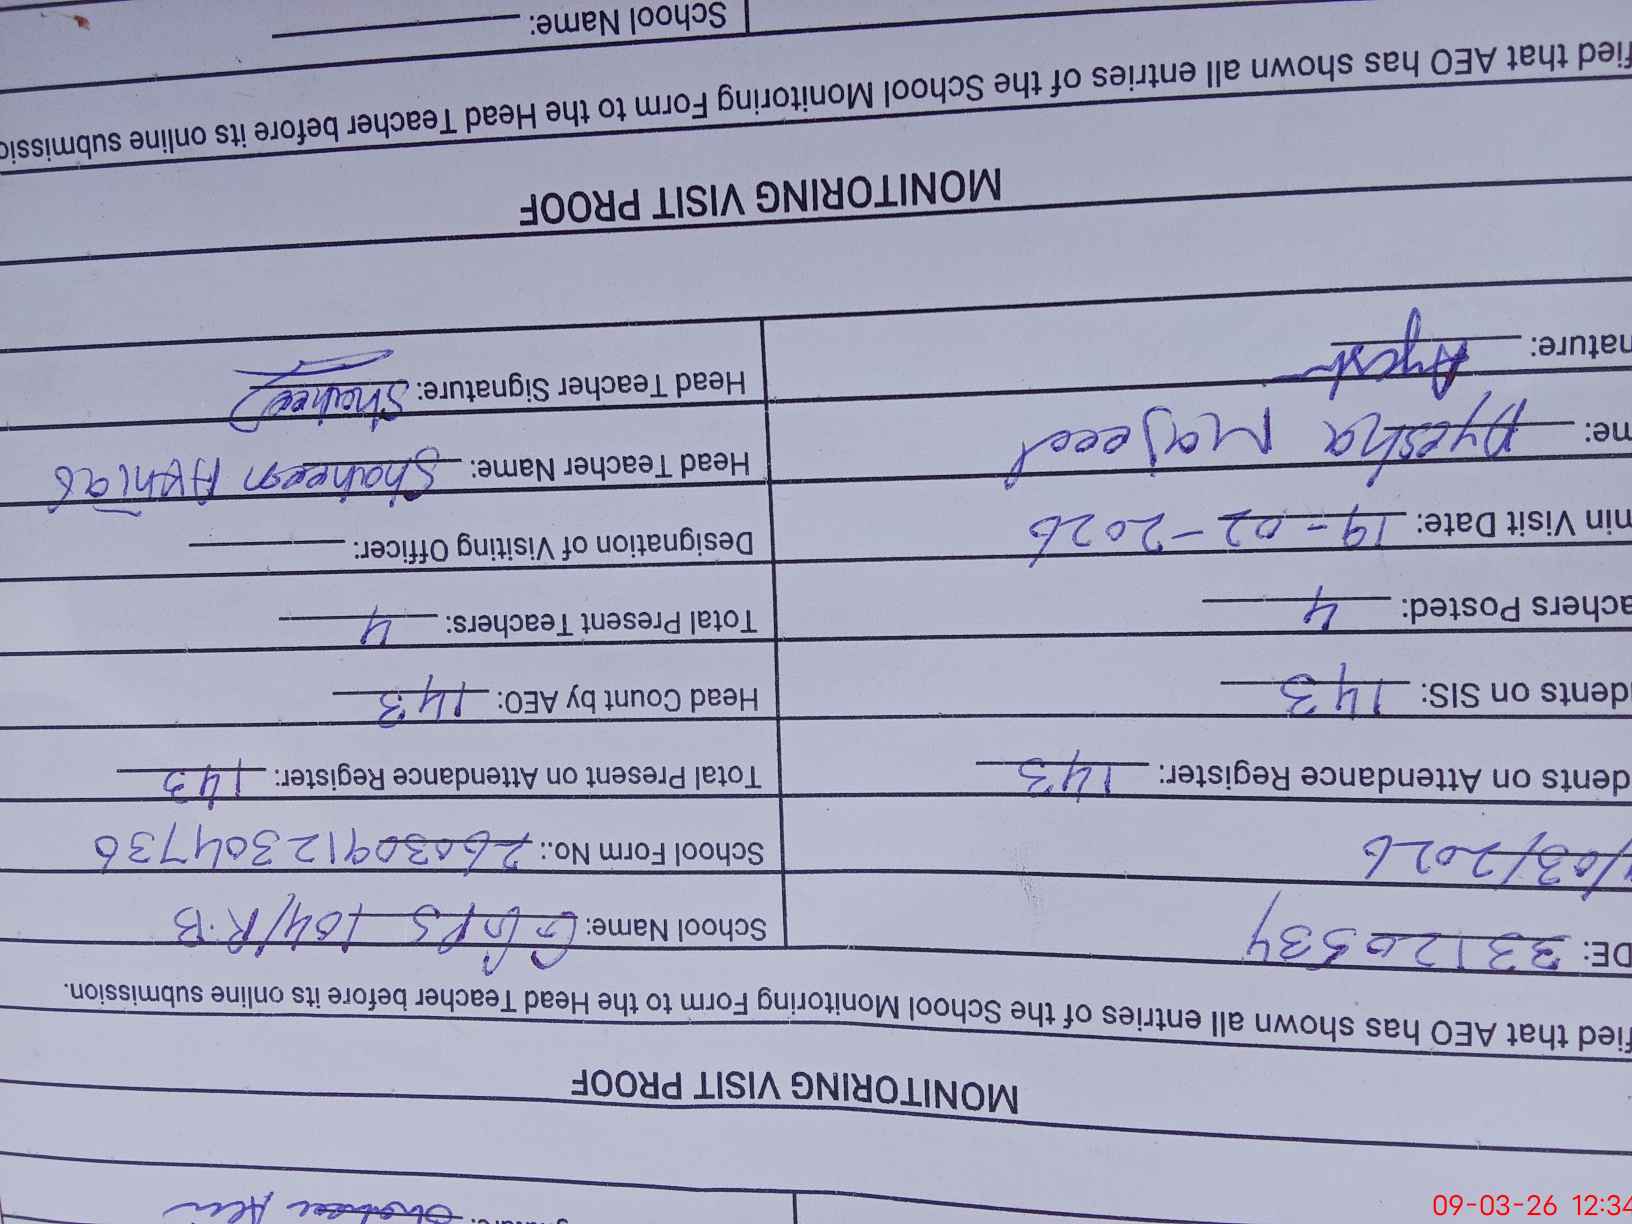 MONITORING VISIT PROOF
fied that AEO has shown all entries of the School Monitoring Form to the Head Teacher before its online submission.
DE: 33120534 School Name: GGPS 104/R.B
/03/2026 School Form No.: 26030912304736
dents on Attendance Register: 143 Total Present on Attendance Register: 143
dents on SIS: 143 Head Count by AEO: 143
achers Posted: 4 Total Present Teachers: 4
min Visit Date: 19-02-2026 Designation of Visiting Officer:
me: Ayesha Majeed Head Teacher Name: Shaheen
nature: Head Teacher Signature: Shaheen
MONITORING VISIT PROOF
fied that AEO has shown all entries of the School Monitoring Form to the Head Teacher before its online submissio
School Name:
09-03-26 12:34